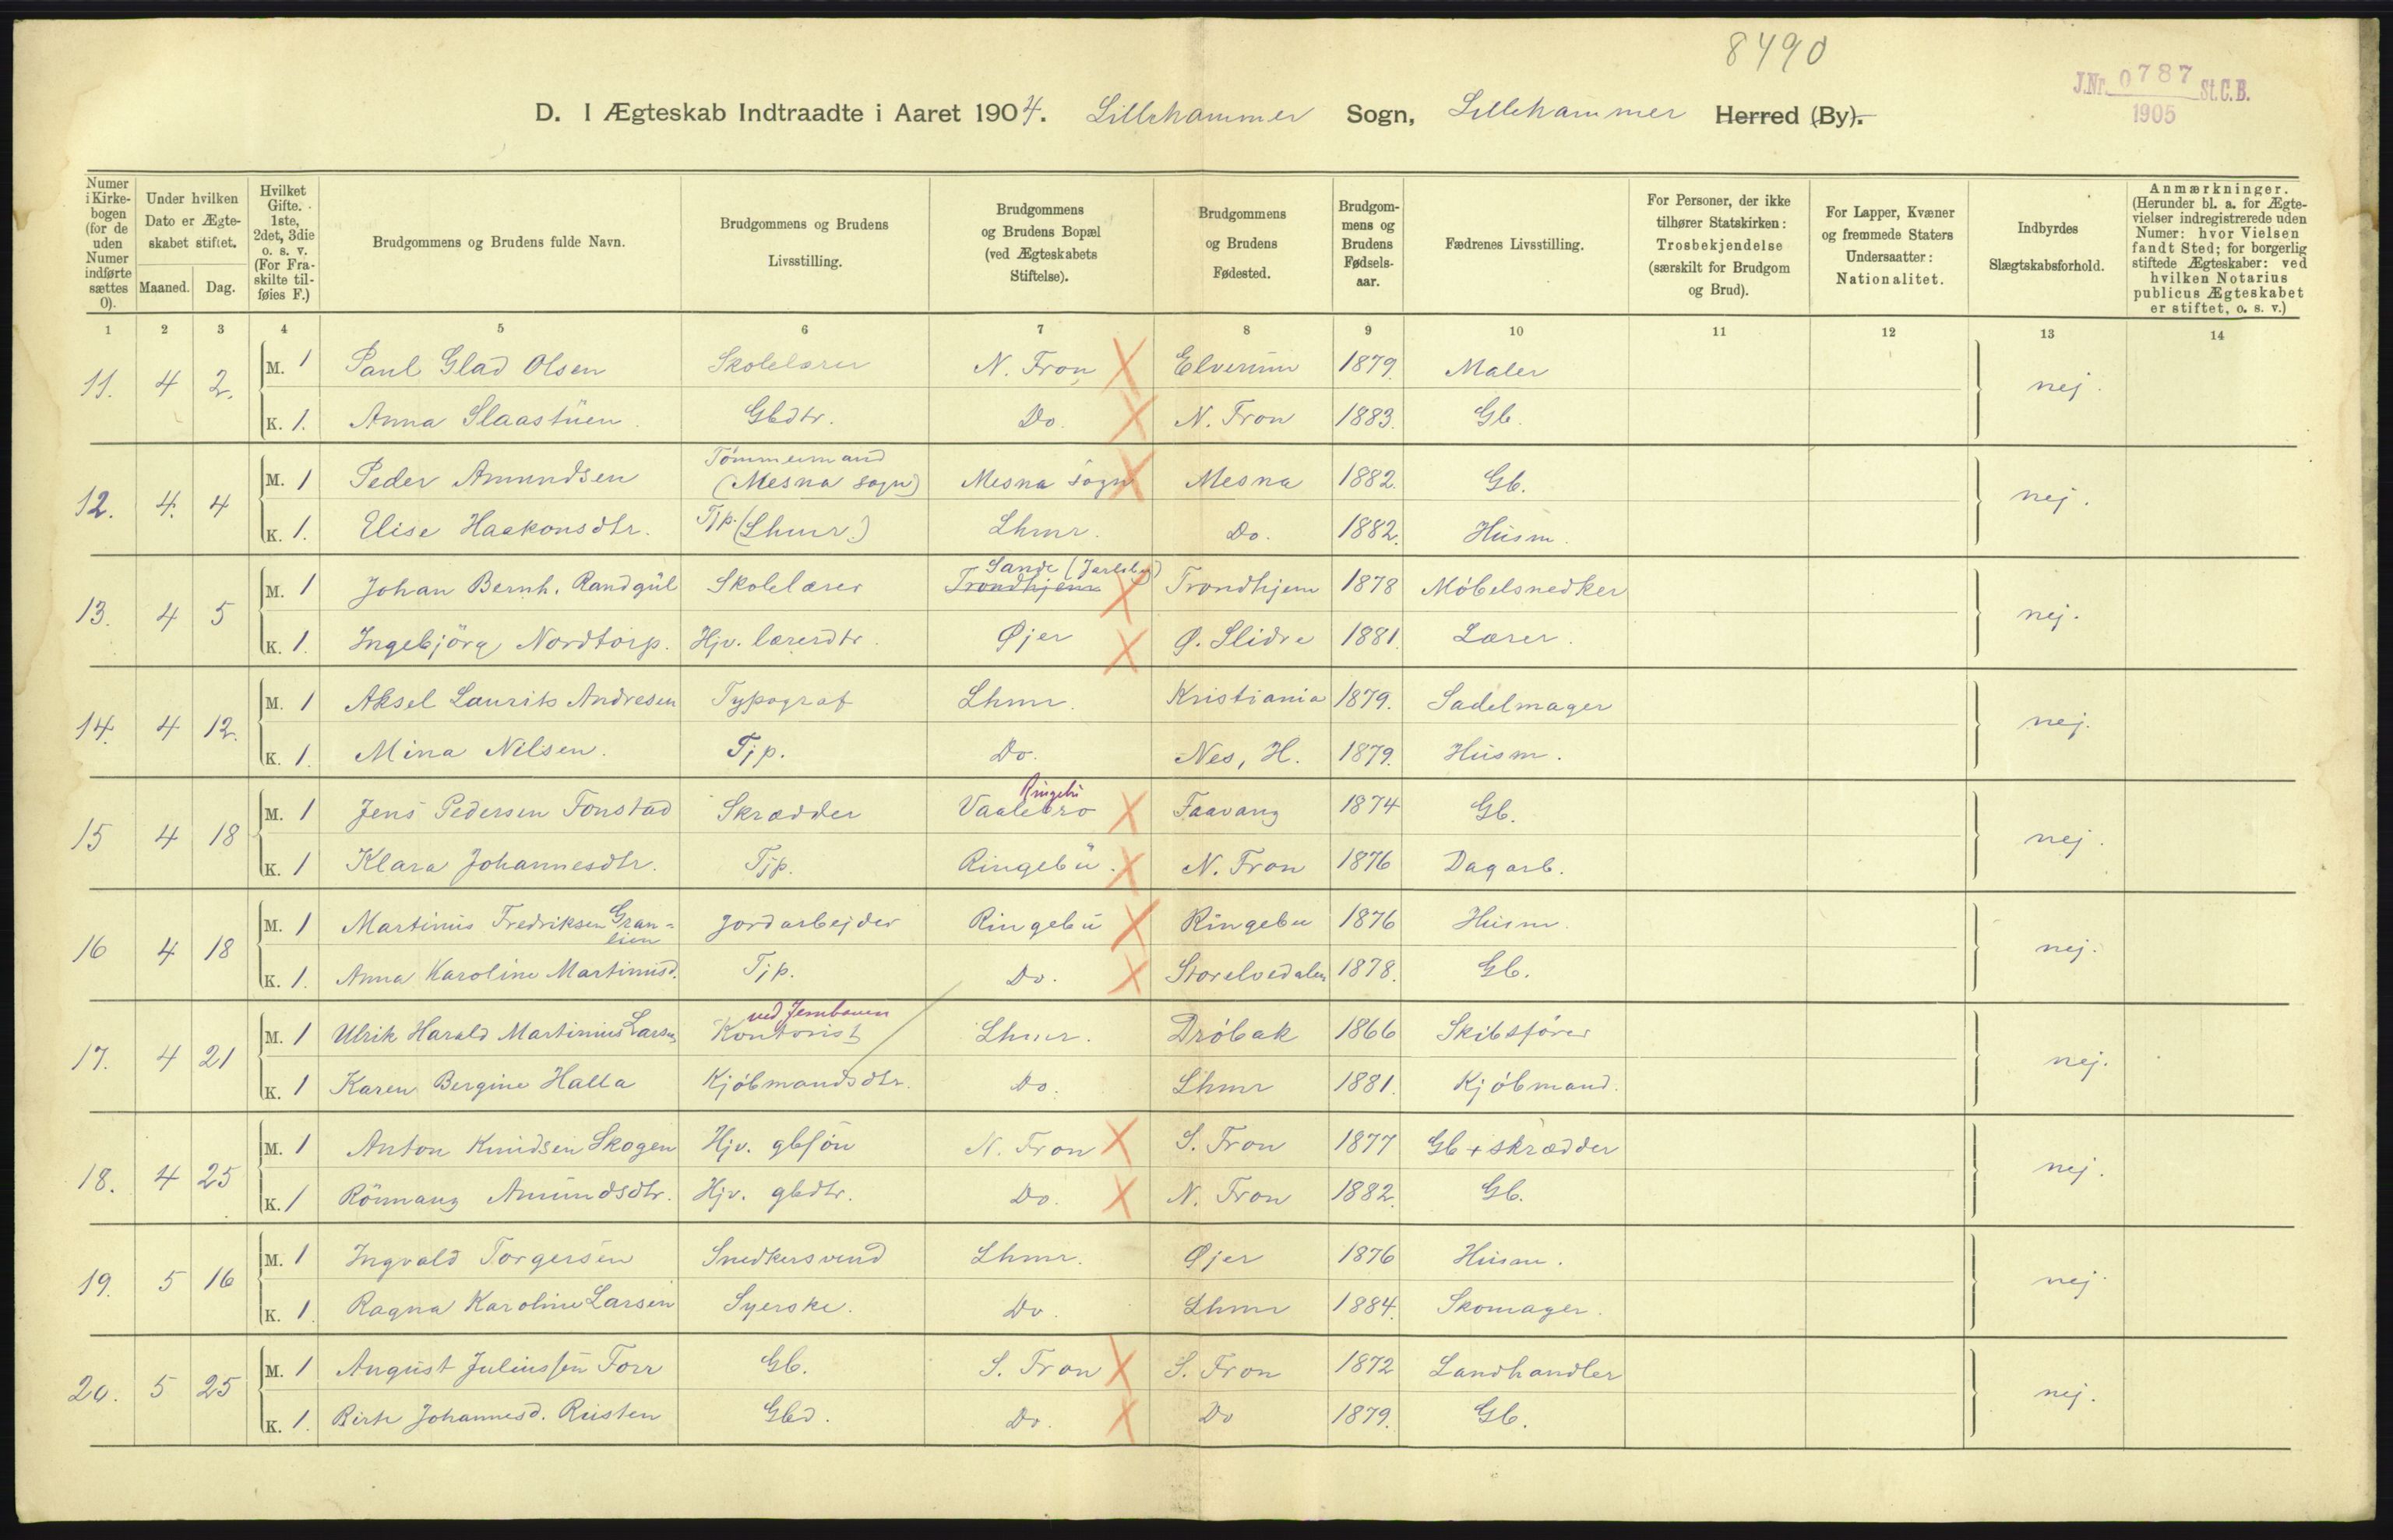 8490
J.Nr. 0787 St.C.B.
1905
D. I Ægteskab Indtraadte i Aaret 1904. Lillehammer Sogn, Lillehammer Herred (By).
Numer i Kirkebogen (for de uden Numer indførte sættes 0).
Under hvilken Dato er Ægteskabet stiftet.
Maaned. Dag.
Hvilket Gifte. 1ste, 2det, 3die o. s. v. (For Fraskilte tilføies F.)
Brudgommens og Brudens fulde Navn.
Brudgommens og Brudens Livsstilling.
Brudgommens og Brudens Bopæl (ved Ægteskabets Stiftelse).
Brudgommens og Brudens Fødested.
Brudgommens og Brudens Fødselsaar.
Fædrenes Livsstilling.
For Personer, der ikke tilhører Statskirken: Trosbekjendelse (særskilt for Brudgom og Brud).
For Lapper, Kvæner og fremmede Staters Undersaatter: Nationalitet.
Indbyrdes Slægtskabsforhold.
Anmærkninger. (Herunder bl. a. for Ægtevielser indregistrerede uden Numer: hvor Vielsen fandt Sted; for borgerlig stiftede Ægteskaber: ved hvilken Notarius publicus Ægteskabet er stiftet, o. s. v.)
1 2 3 4 5 6 7 8 9 10 11 12 13 14
11. 4 2. M. 1 Paul Glad Olsen Skolelærer N. Fron Elverum 1879. Maler nej.
K. 1. Anna Slaastuen. Gbdtr. Do. N. Fron 1883. Gb.
12. 4. 4 M. 1 Peder Amundsen Tömmermand (Mesna sogn) Mesna sogn Mesna 1882. Gb. nej.
K. 1. Elise Haakonsdtr. Tjp. (Lhmr.) Lhmr. Do. 1882. Husm.
13. 4 5 M. 1 Johan Bernh. Randgül Skolelærer Trondhjem Sande (Jarlsber) Trondhjem 1878 Möbelsnedker nej.
K. 1. Ingebjörg Nordtorp. Hjv. lærerdtr. Øjer Ø. Slidre 1881. Lærer.
14. 4 12. M. 1 Aksel Laurits Andresen Typograf Lhmr. Kristiania 1879. Sadelmager nej.
K. 1. Mina Nilsen. Tjp. Do. Nes, H. 1879. Husm.
15 4 18 M. 1 Jens Pedersen Fonstad Skrædder Vaalebro Ringebu Faavang 1874 Gb. nej.
K. 1 Klara Johannesdtr. Tjp. Ringebu. N. Fron 1876 Dagarb.
16 4 18 M. 1 Martinus Fredriksen Gran=lien Jordarbejder Ringebu Ringebu 1876 Husm. nej.
K. 1. Anna Karoline Martinusd. Tjp. Do. Storelvedalen 1878. Gb.
17. 4 21 M. 1 Ulrik Harald Martinius Larsen Kontorist ved Jernbanen Lhmr. Dröbak 1866 Skibsförer nej.
K. 1 Karen Bergine Halla Kjöbmandsdtr. Do. Lhmr 1881. Kjöbmand.
18. 4 25 M. 1 Anton Knudsen Skogen Hjv. gbsön N. Fron S. Fron 1877 Gb + skrædder nej.
K. 1 Rönnaug Amundsdtr. Hjv. gbdtr. Do. N. Fron 1882. Gb.
19. 5 16 M. 1 Ingvald Torgersen Snedkersvend Lhmr. Øjer 1876 Husm. nej.
K. 1. Ragna Karoline Larsen Syerske. Do. Lhmr 1884. Skomager.
20. 5 25 M. 1 August Juliussen Forr Gb. S. Fron S. Fron 1872 Landhandler nej.
K. 1. Birte Johannesd. Rusten Gbd. Do. Do 1879. Gb.